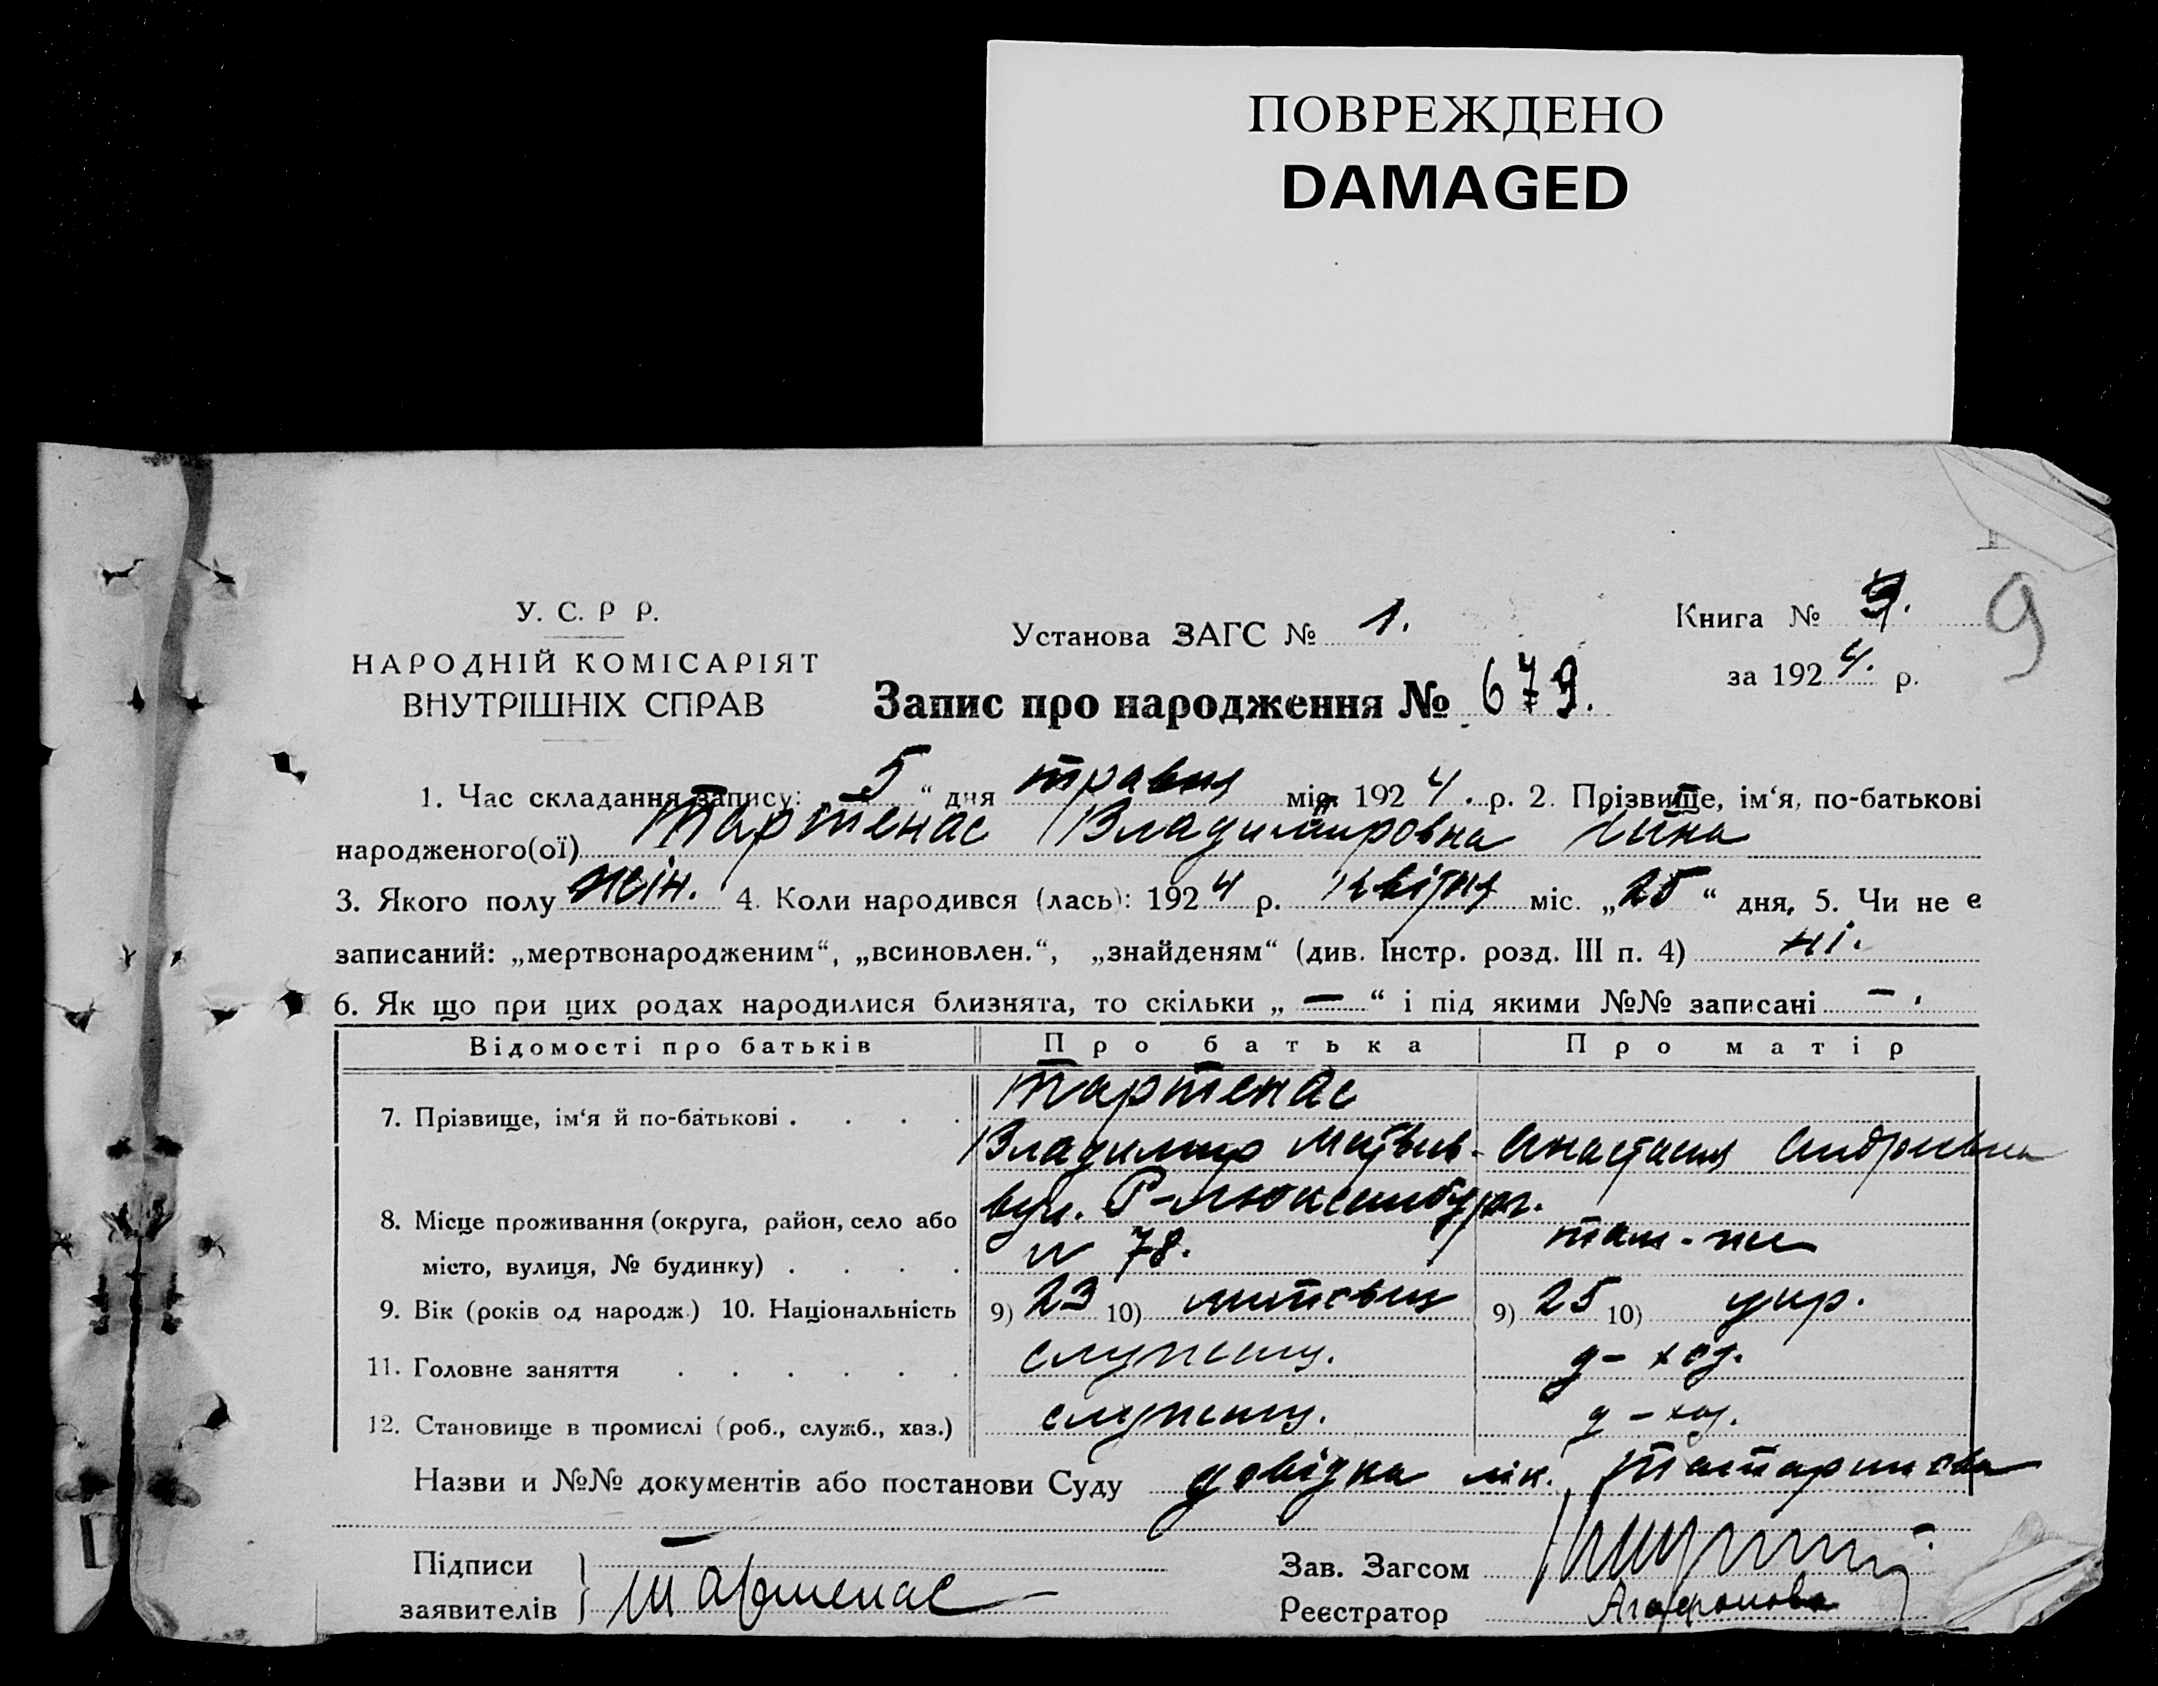 ПОВРЕЖДЕНО
DAMAGED
У. С. Р Р.
НАРОДНІЙ КОМІСАРІЯТ
ВНУТРІШНІХ СПРАВ
Установа ЗАГС № 1.
Книга № 9.
9
за 1924. р.
Запис про народження № 679.
1. Час складання запису: 5 “ дня травня міс. 1924. р. 2. Прізвище, ім‘я, по-батькові
народженого(ої) Тартенас Владимировна Нина
3. Якого полу жін. 4. Коли народився (лась): 1924 р. квітня міс. „25“ дня, 5. Чи не є
записаний: „мертвонародженим“, „всиновлен.“, „знайденям“ (див. Інстр. розд. III п. 4) ні.
6. Як що при цих родах народилися близнята, то скільки „—“ і під якими №№ записані — .
Відомості про батьків Про батька Про матір
7. Прізвище, ім‘я й по-батькові . . . . Тартенас
Владимир Матвіев- Анастасия Андриевна
8. Місце проживання (округа, район, село або вул. Р-Люксембург.
місто, вулиця, № будинку) . . . . № 78. там-же
9. Вік (років од народж.) 10. Національність 9) 23 10) литовец 9) 25 10) укр.
11. Головне заняття . . . . . . служащ. д-хоз.
12. Становище в промислі (роб., служб., хаз.) служащ. д-хоз.
Назви и №№ документів або постанови Суду довідка лік. Татаринова
Підписи
заявителів Тартенас
Зав. Загсом
Реєстратор Агафонова